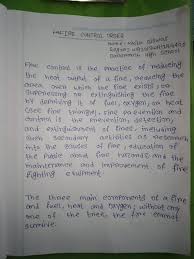 FIRE CONTROL ORDER
Fire control is the practice of reducing
the heat output of a fire, reducing the
area over which the fire exists, or
suppressing or extinguishing the fire
by depriving it of fuel, oxygen, or heat
(see fire triangle). Fire prevention and
control is the prevention, detection,
and extinguishment of fires, including
such secondary activities as research
into the causes of fire, education of
the public about fire hazards, and the
maintenance and improvement of fire
fighting
The three main components of a fire
are fuel, heat and oxygen; without any
one of the three, the fire cannot
survive.